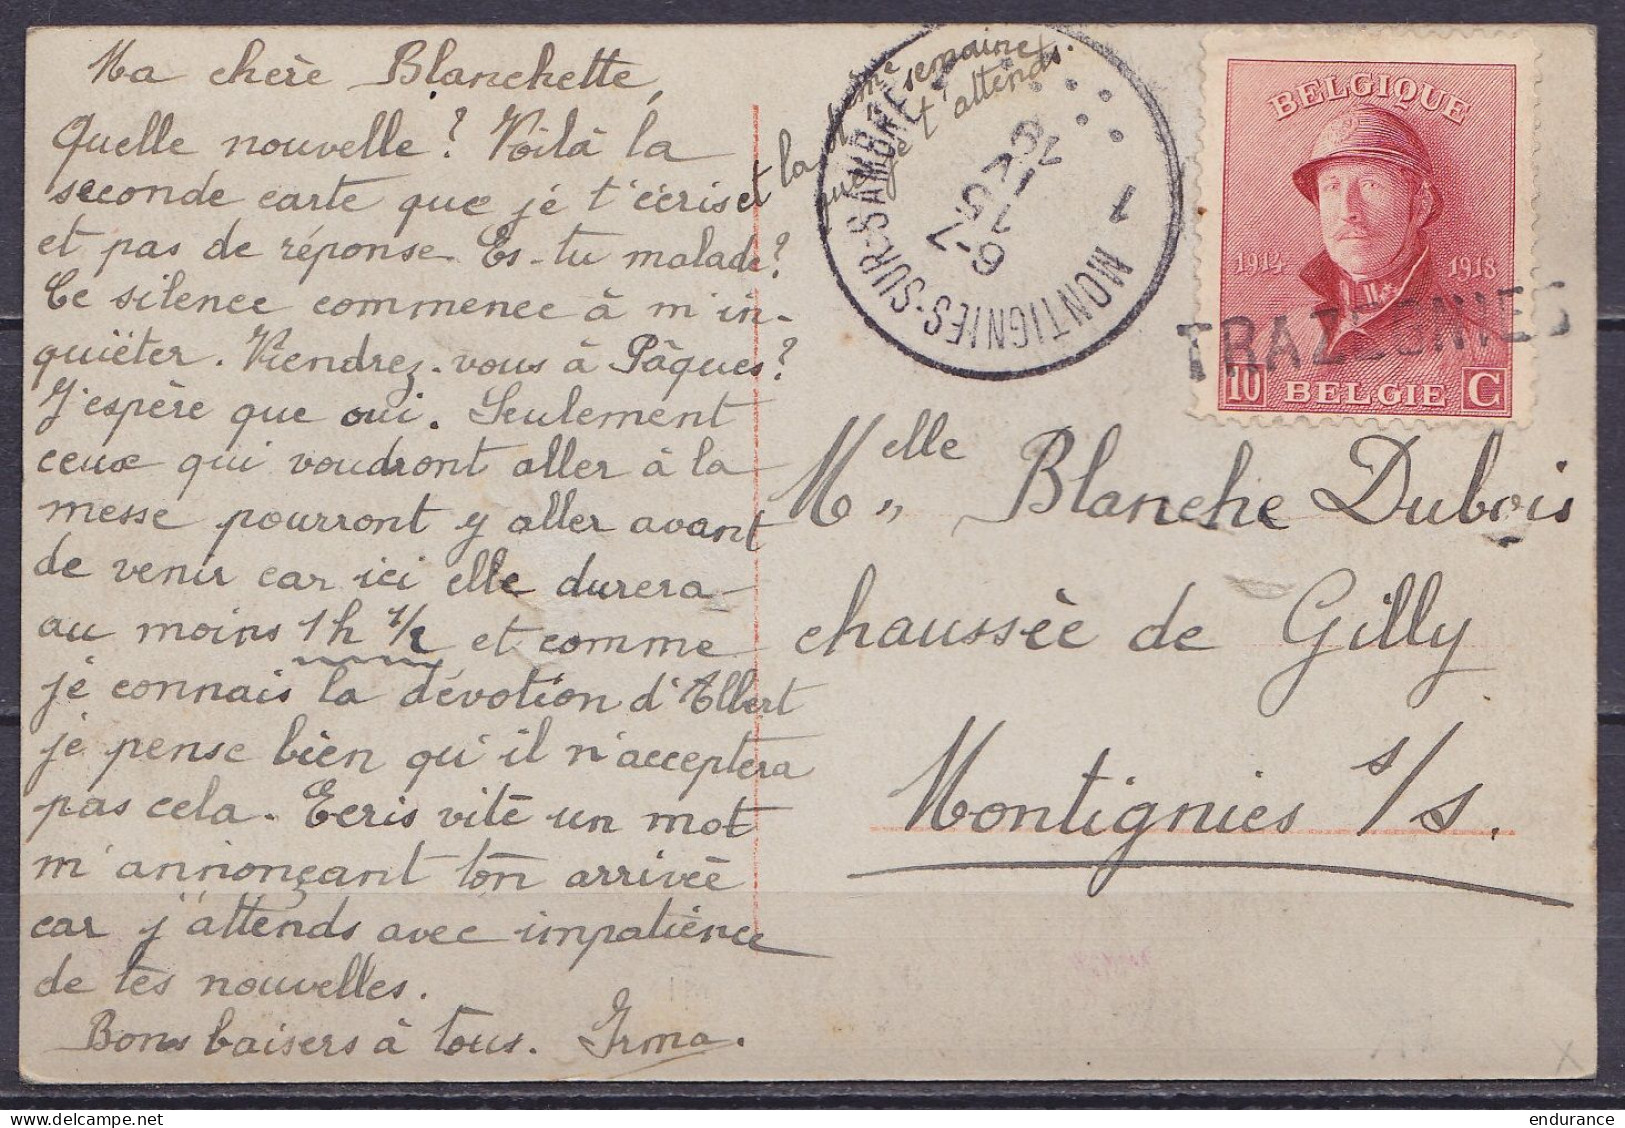 Ma chère Blanchette,
Quelle nouvelle? Voilà la
seconde carte que je t'écris et la
et pas de réponse. Es-tu malade?
Ce silence commence à m'in-
quiéter. Viendrez-vous à Pâques?
J'espère que oui. Seulement
ceux qui voudront aller à la
messe pourront y aller avant
de venir car ici elle durera
au moins 1h 1/2 et comme
je connais la dévotion d'Albert
je pense bien qu'il n'acceptera
pas cela. Ecris vite un mot
m'annonçant ton arrivée
car j'attends avec impatience
de tes nouvelles.
Bons baisers à tous. Irma.
semaine
que je t'attends.
MONTIGNIES-SUR-SAMBRE
1
BELGIQUE
1914 1918
TRAZEGNIES
10 BELGIE C
Melle Blanche Dubois
chaussée de Gilly
Montignies s/s.
x
endurance